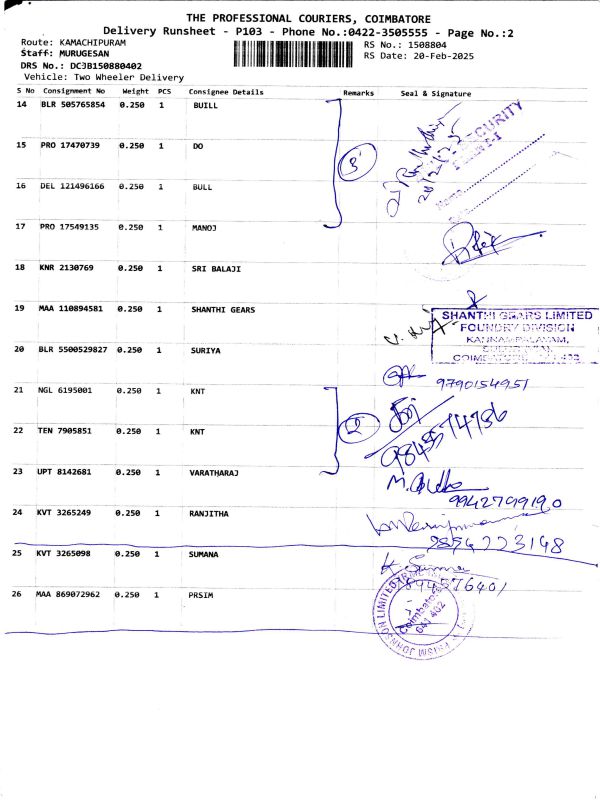 THE PROFESSIONAL COURIERS, COIMBATORE
Delivery Runsheet - P103 - Phone No.:0422-3505555 - Page No.:2
Route: KAMACHIPURAM
RS No.: 1508804
Staff: MURUGESAN
RS Date: 20-Feb-2025
DRS No.: DC3B150880402
Vehicle: Two Wheeler Delivery
S No Consignment No Weight PCS Consignee Details Remarks Seal & Signature
14 BLR 505765854 0.250 1 BUILL
15 PRO 17470739 0.250 1 DO
3
SECURITY
16 DEL 121496166 0.250 1 BULL
17 PRO 17549135 0.250 1 MANOJ
18 KNR 2130769 0.250 1 SRI BALAJI
19 MAA 110894581 0.250 1 SHANTHI GEARS
SHANTHI GEARS LIMITED
FOUNDRY DIVISION
KANNAMPALAYAM,
20 BLR 5500529827 0.250 1 SURIYA
9790154951
21 NGL 6195001 0.250 1 KNT
22 TEN 7905851 0.250 1 KNT
2
9845574786
23 UPT 8142681 0.250 1 VARATHARAJ
9942799190
24 KVT 3265249 0.250 1 RANJITHA
9894223148
25 KVT 3265098 0.250 1 SUMANA
26 MAA 869072962 0.250 1 PRSIM
PRISM JOHNSON LIMITED
Coimbatore
641 402